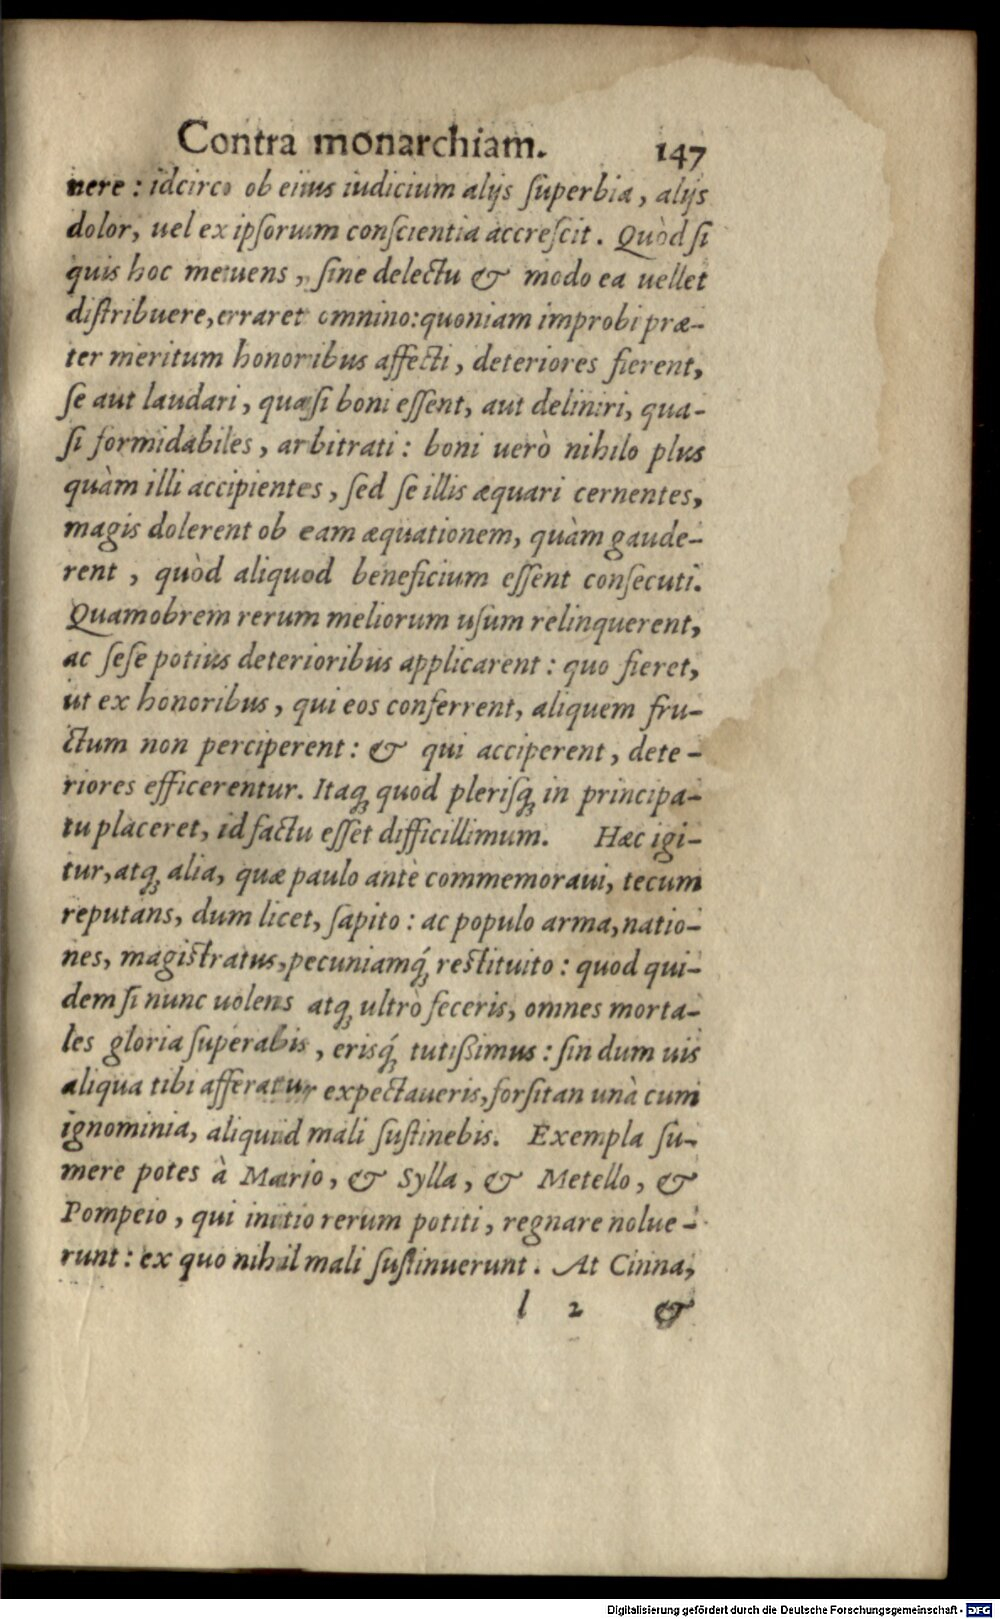 Contra monarchiam. 147
nere : idcirco ob eius iudicium alijs ſuperbia, alijs
dolor, uel ex ipſorum conſcientia accreſcit. Quòd ſi
quis hoc metuens, ſine delectu & modo ea uellet
diſtribuere, erraret omnino: quoniam improbi præ-
ter meritum honoribus affecti, deteriores fierent,
ſe aut laudari, quaſi boni eſſent, aut deliniri, qua-
ſi formidabiles, arbitrati : boni uerò nihilo plus
quàm illi accipientes, ſed ſe illis æquari cernentes,
magis dolerent ob eam æquationem, quàm gaude-
rent, quòd aliquod beneficium eſſent conſecuti.
Quamobrem rerum meliorum uſum relinquerent,
ac ſeſe potius deterioribus applicarent : quo fieret,
ut ex honoribus, qui eos conferrent, aliquem fru-
ctum non perciperent : & qui acciperent, dete-
riores efficerentur. Itaq; quod pleriſq; in principa-
tu placeret, id factu eſſet difficillimum. Hæc igi-
tur, atq; alia, quæ paulo antè commemoraui, tecum
reputans, dum licet, ſapito : ac populo arma, natio-
nes, magiſtratus, pecuniamq́; reſtituito : quod qui-
dem ſi nunc uolens atq; ultrò feceris, omnes morta-
les gloria ſuperabis, erisq́; tutiſsimus : ſin dum uis
aliqua tibi afferatur expectaueris, forſitan unà cum
ignominia, aliquid mali ſuſtinebis. Exempla ſu-
mere potes à Mario, & Sylla, & Metello, &
Pompeio, qui initio rerum potiti, regnare nolue-
runt : ex quo nihil mali ſuſtinuerunt. At Cinna,
l 2 &
Digitalisierung gefördert durch die Deutsche Forschungsgemeinschaft - DFG